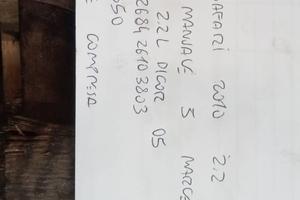 AFARI 2010 2.2
MANUALE 5 MARCE
2.2L DICOR 05
26842610 3803
050
E COMPRESA